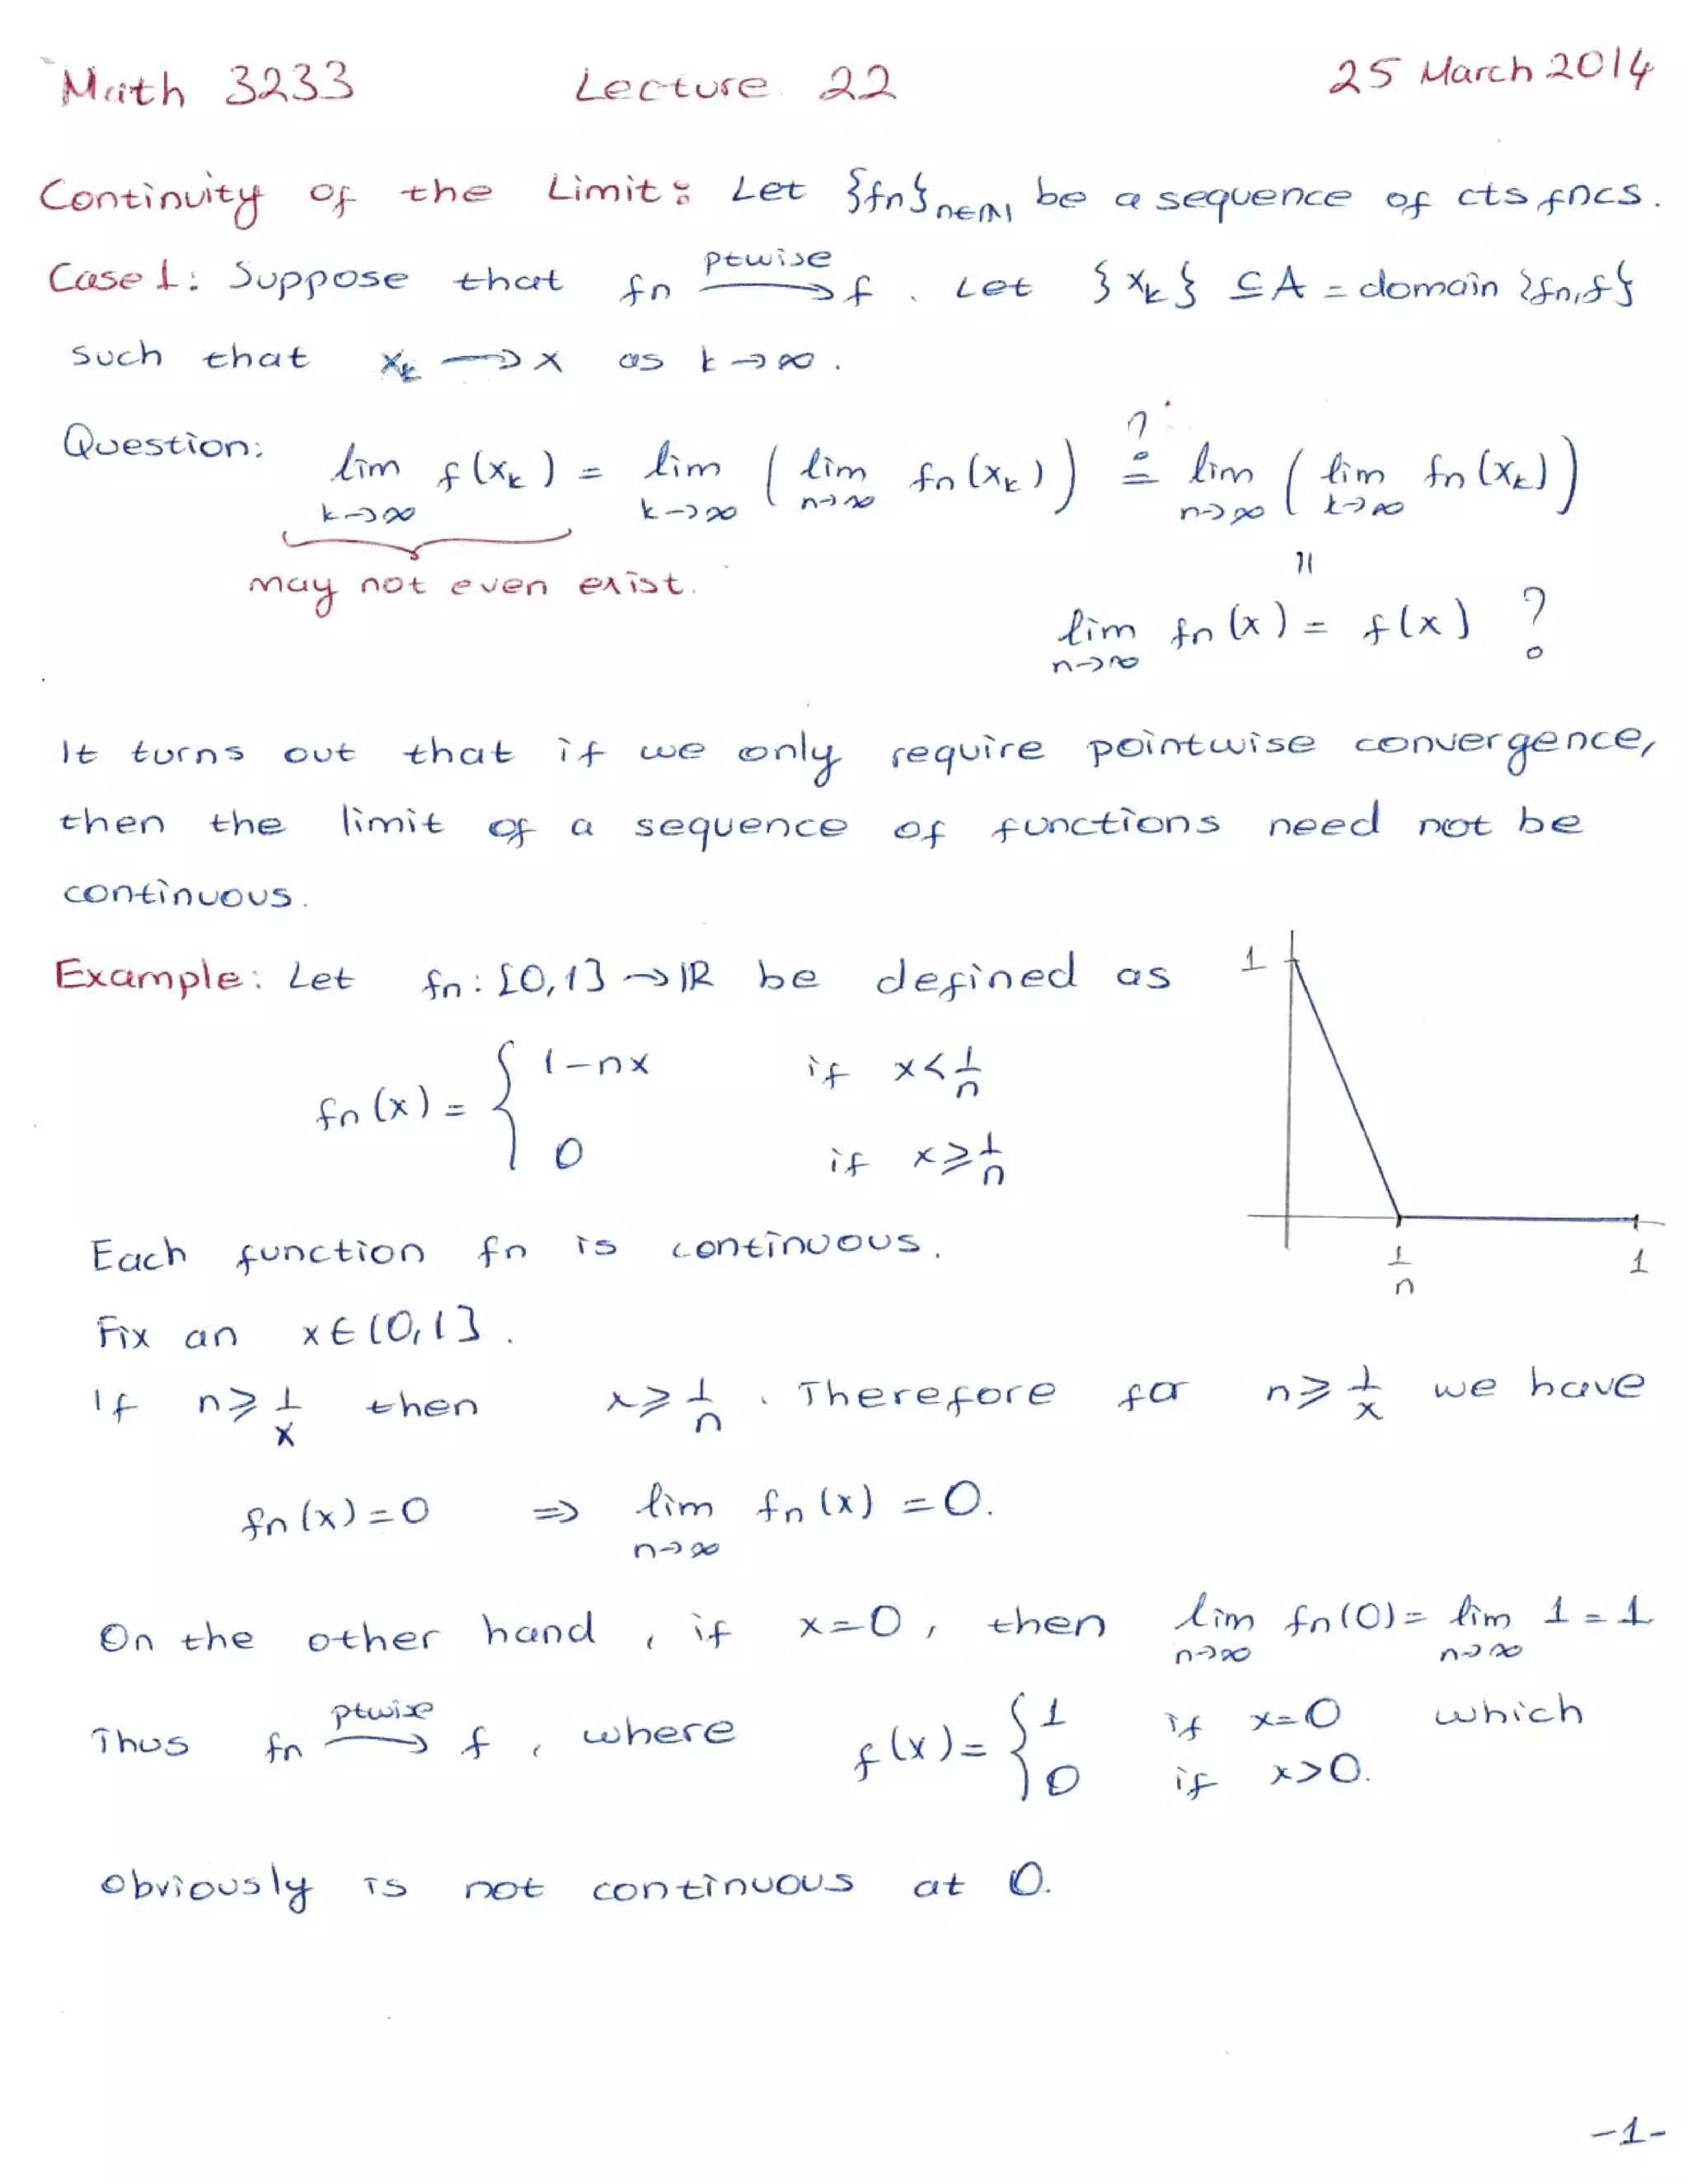 Math 3233 Lecture 22 25 March 2014
Continuity of the Limit: Let {fn}n∈ℕ be a sequence of cts fncs.
Case 1: Suppose that fn —ptwise→ f. Let {xk} ⊆ A = domain {fn,f}
such that xk → x as k→∞.
Question: lim k→∞ f(xk) = lim k→∞ ( lim n→∞ fn(xk) ) ?= lim n→∞ ( lim k→∞ fn(xk) )
may not even exist.
=
lim n→∞ fn(x) = f(x) ?
It turns out that if we only require pointwise convergence,
then the limit of a sequence of functions need not be
continuous.
Example: Let fn: [0,1] → ℝ be defined as
fn(x) = { 1-nx if x < 1/n
0 if x ≥ 1/n
1
1/n 1
Each function fn is continuous.
Fix an x ∈ (0,1].
If n ≥ 1/x then x ≥ 1/n. Therefore for n ≥ 1/x we have
fn(x) = 0 ⇒ lim n→∞ fn(x) = 0.
On the other hand, if x=0, then lim n→∞ fn(0) = lim n→∞ 1 = 1
Thus fn —ptwise→ f, where f(x) = { 1 if x=0 which
0 if x>0.
obviously is not continuous at 0.
-1-